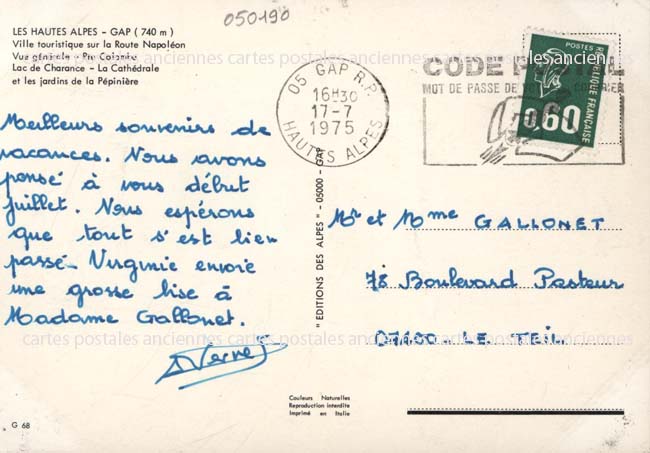 050190
LES HAUTES ALPES - GAP (740 m)
Ville touristique sur la Route Napoléon
Vue générale - Rue Colombe
Lac de Charance - La Cathédrale
et les jardins de la Pépinière
05 GAP R.P.
16H30
17-7
1975
HAUTES ALPES
CODE POSTAL
MOT DE PASSE DE VOTRE COURRIER
POSTES
REPUBLIQUE FRANÇAISE
0,60
cartes postales anciennes cartes postales anciennes cartes postales anciennes
Meilleurs souvenirs de
vacances. Nous avons
pensé à vous début
juillet. Nous espérons
que tout s'est bien
passé. Virginie envoie
une grosse bise à
Madame Gallonet.
Vernet
"EDITIONS DES ALPES" - 05000 - GAP
Mr et Mme GALLONET
78 Boulevard Pasteur
07400 LE TEIL
cartes postales anciennes cartes postales anciennes cartes postales anciennes
cartes postales anciennes cartes postales anciennes cartes postales anciennes
Couleurs Naturelles
Reproduction interdite
Imprimé en Italie
G 68